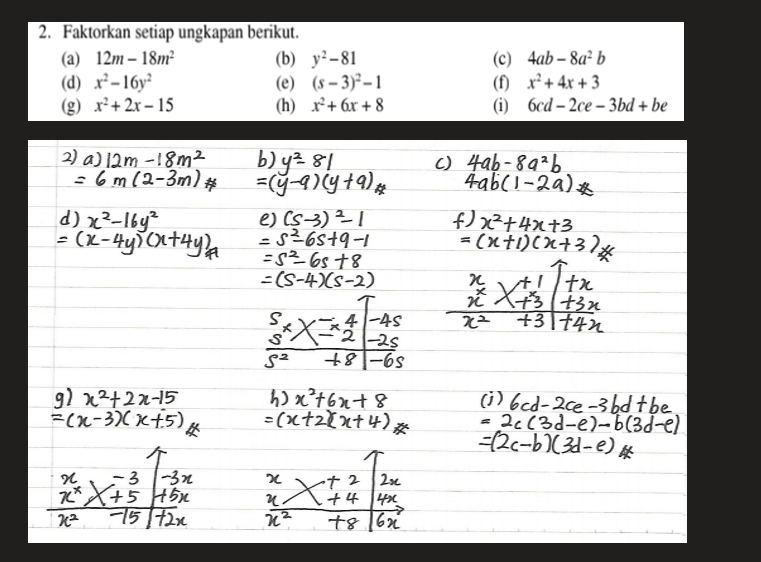 2. Faktorkan setiap ungkapan berikut.
(a) 12m – 18m²
(b) y² – 81
(c) 4ab – 8a² b
(d) x² – 16y²
(e) (s – 3)² – 1
(f) x² + 4x + 3
(g) x² + 2x – 15
(h) x² + 6x + 8
(i) 6cd – 2ce – 3bd + be
2) a) 12m - 18m²
= 6m(2-3m) #
b) y² 81
=(y-9)(y+9) #
c) 4ab - 8a²b
4ab(1-2a) #
d) x²-16y²
= (x-4y)(x+4y) #
e) (s-3)²-1
= s²-6s+9-1
= s²-6s+8
= (s-4)(s-2)
s - 4 -4s
s - 2 -2s
s² +8 -6s
f) x²+4x+3
= (x+1)(x+3) #
x +1 +x
x +3 +3x
x² +3 +4x
g) x²+2x-15
=(x-3)(x+5) #
x -3 -3x
x +5 +5x
x² -15 +2x
h) x²+6x+8
=(x+2)(x+4) #
x +2 2x
x +4 4x
x² +8 6x
(i) 6cd-2ce-3bd+be
= 2c(3d-e)-b(3d-e)
=(2c-b)(3d-e) #